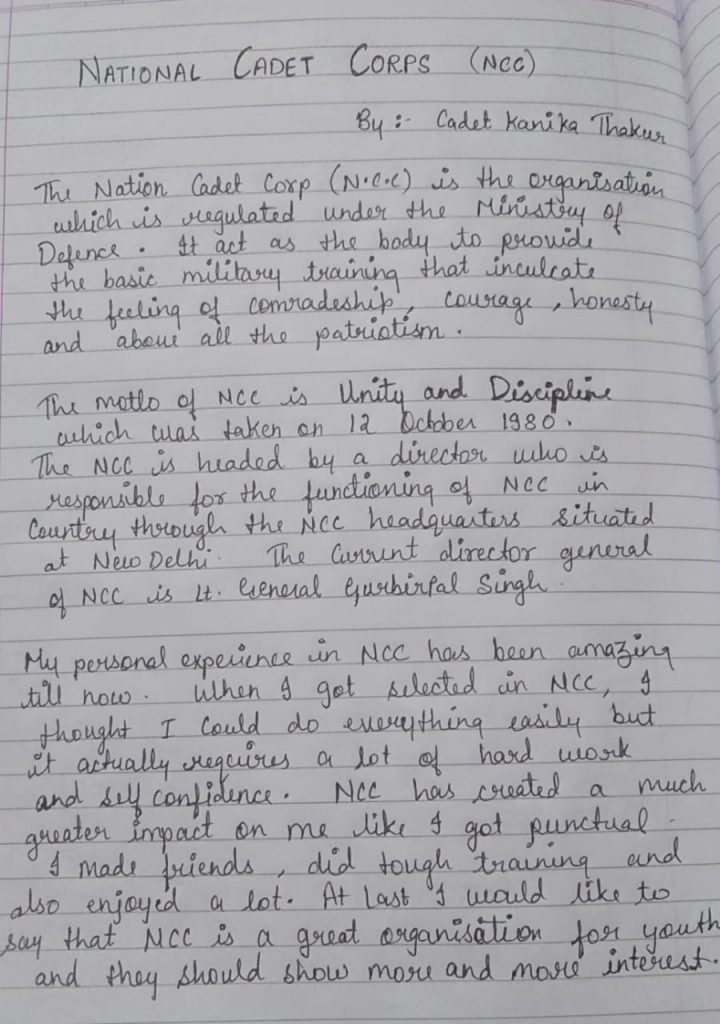 NATIONAL CADET CORPS (NCC)
By :- Cadet Kanika Thakur
The Nation Cadet Corp (N.C.C) is the organisation
which is regulated under the Ministry of
Defence. It act as the body to provide
the basic military training that inculcate
the feeling of comradeship, courage, honesty
and above all the patriotism.
The motto of NCC is Unity and Discipline
which was taken on 12 October 1980.
The NCC is headed by a director who is
responsible for the functioning of NCC in
Country through the NCC headquarters situated
at New Delhi. The Current director general
of NCC is Lt. General Gurbirpal Singh.
My personal experience in NCC has been amazing
till now. When I got selected in NCC, I
thought I could do everything easily but
it actually requires a lot of hard work
and self confidence. NCC has created a much
greater impact on me like I got punctual.
I made friends, did tough training and
also enjoyed a lot. At last I would like to
say that NCC is a great organisation for youth
and they should show more and more interest.